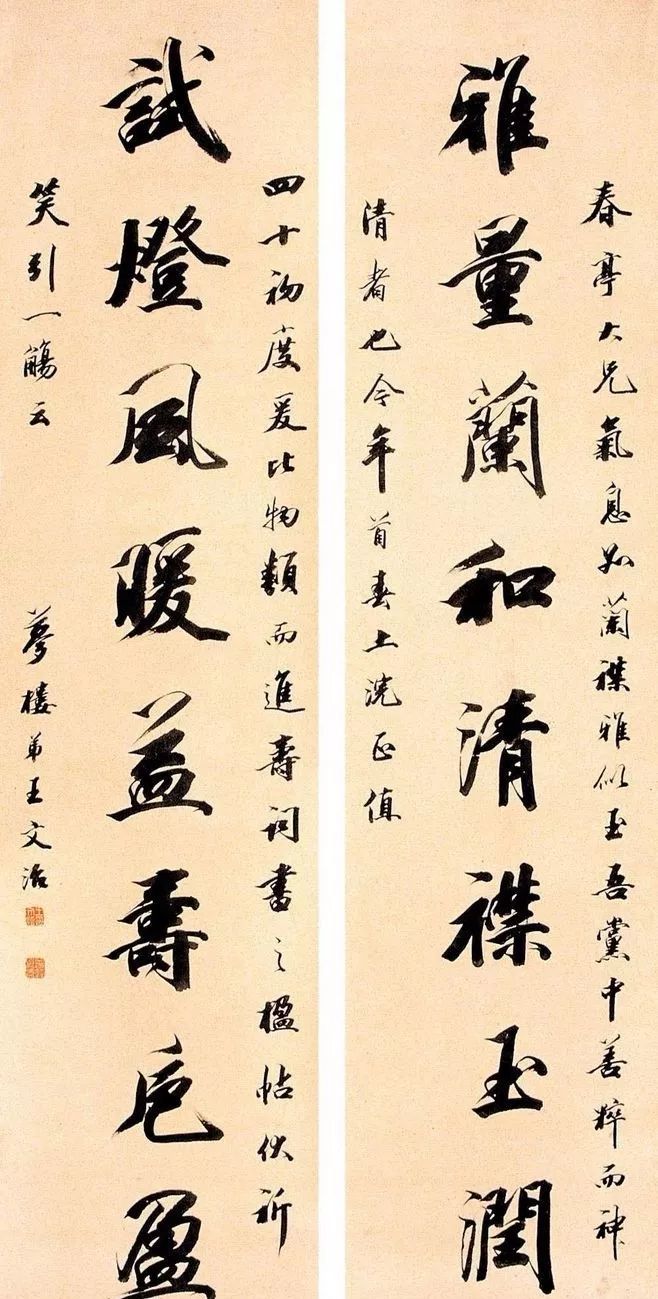 春亭大兄氣息如蘭襟雅似玉吾黨中善粹而神
雅量蘭和清襟玉潤
清者也今年首春上浣正值
四十初度爰比物類而進壽詞書之楹帖伏祈
試燈風暖益壽卮盈
笑引一觴云
夢樓弟王文治